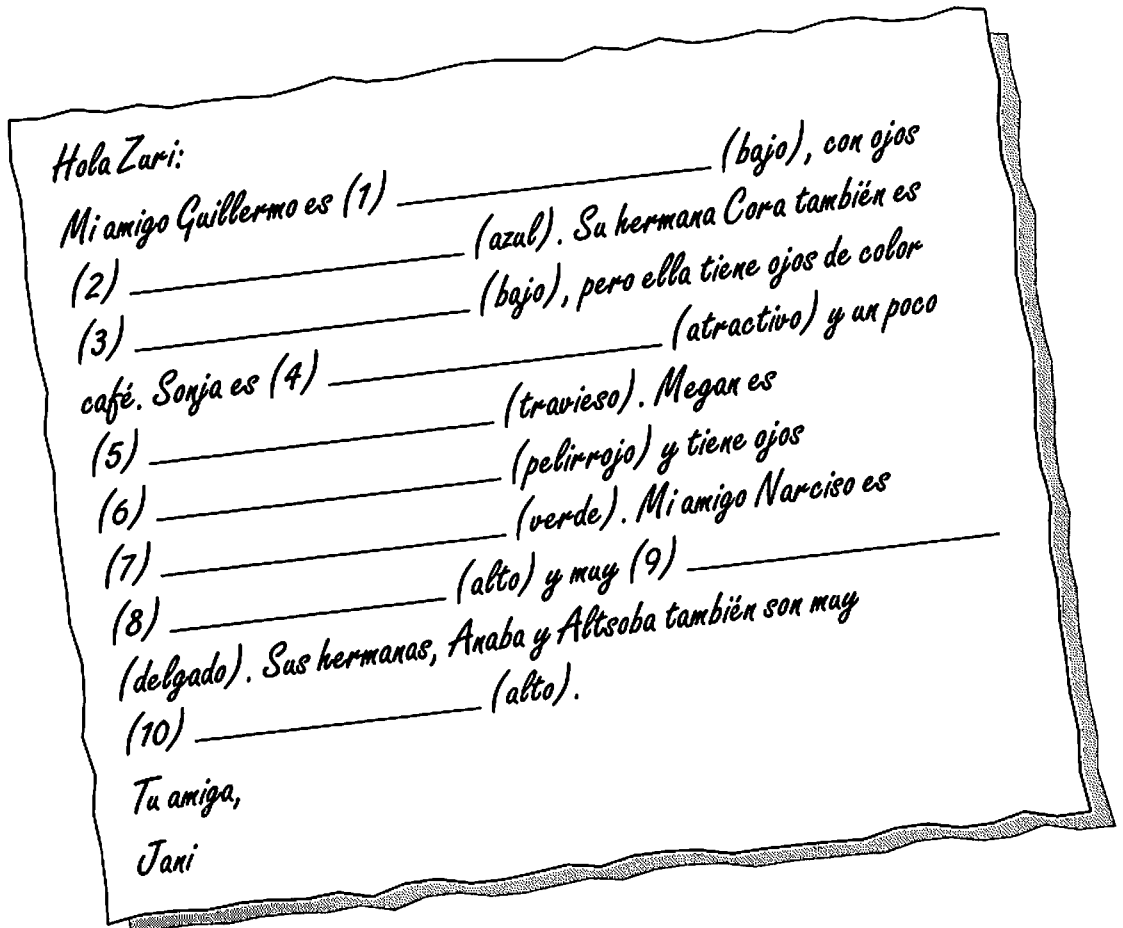 Hola Zuri:
Mi amigo Guillermo es (1) ____________ (bajo), con ojos
(2) ____________ (azul). Su hermana Cora también es
(3) ____________ (bajo), pero ella tiene ojos de color
café. Sonja es (4) ____________ (atractivo) y un poco
(5) ____________ (travieso). Megan es
(6) ____________ (pelirrojo) y tiene ojos
(7) ____________ (verde). Mi amigo Narciso es
(8) ____________ (alto) y muy (9) ____________
(delgado). Sus hermanas, Anaba y Altsoba también son muy
(10) ____________ (alto).
Tu amiga,
Jani